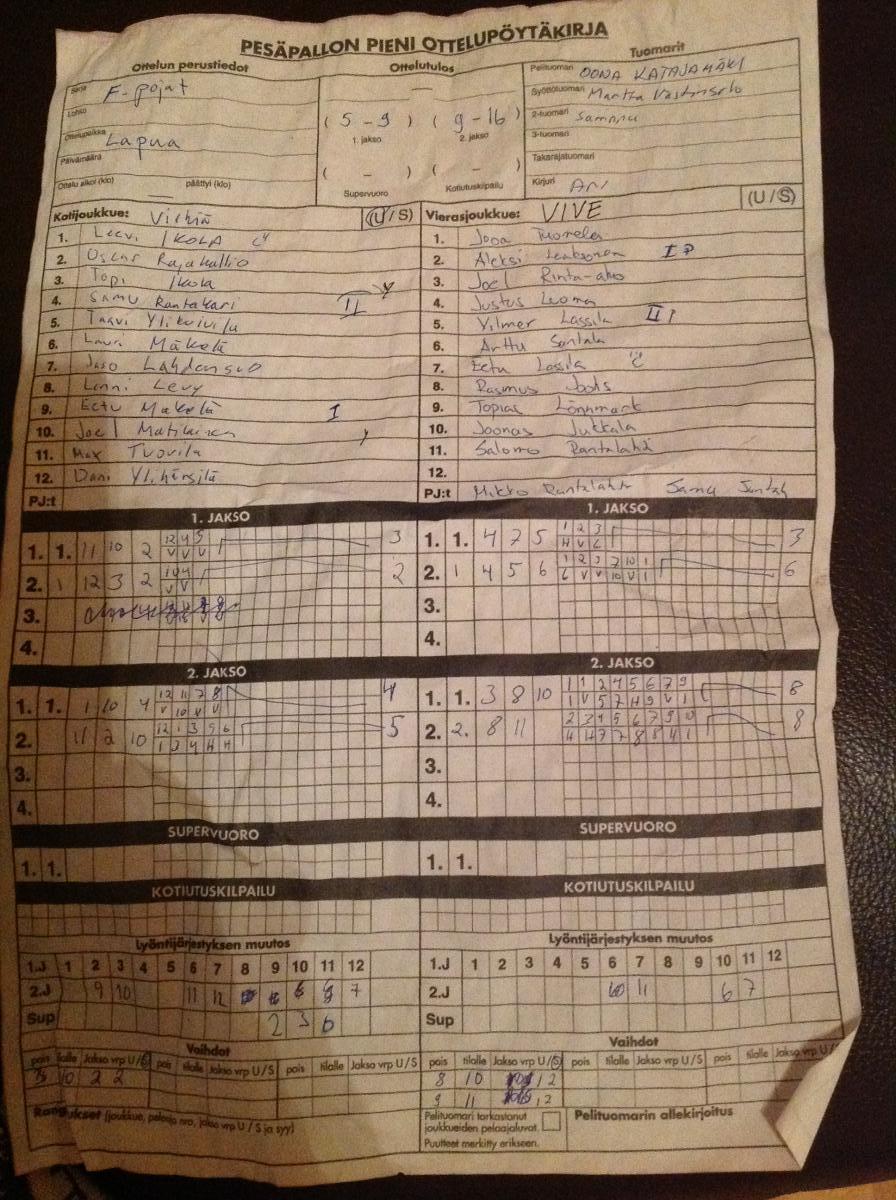 PESÄPALLON PIENI OTTELUPÖYTÄKIRJA
Ottelun perustiedot Ottelutulos Tuomarit
Sarja F-pojat
Lohko
Ottelupaikka Lapua
Päivämäärä
Ottelu alkoi (klo) päättyi (klo)
( 5 - 9 ) ( 9 - 16 )
1. jakso 2. jakso
( - ) ( - )
Supervuoro Kotiutuskilpailu
Pelituomari OONA KATAJAMÄKI
Syöttötuomari Martta
2-tuomari Samppu
3-tuomari
Takarajatuomari
Kirjuri Ari
Kotijoukkue: (U/S) Vierasjoukkue: VIVE (U/S)
1. Leevi IKOLA 1. Jooa Tuomela
2. Oscar Rajakallio 2. Aleksi I
3. Topi Ikola 3. Joel Rinta-aho
4. Samu Rantakari II 4. Justus Luoma
5. Taavi 5. Vilmer Lassila II
6. Lauri Mäkelä 6. Arttu Santala
7. Lahdensuo 7. Eetu Lassila
8. Lenni Levy 8. Rasmus
9. Eetu Mäkelä I 9. Topias Lönnmark
10. Joel Matilainen 10. Joonas Jukkala
11. Max Tuovila 11. Salomo Rantalahti
12. Dani Ylihärsilä 12.
PJ:t PJ:t Mikko Rantalahti Samu
1. JAKSO 1. JAKSO
1. 1. 11 10 2 12 4 5 3 1. 1. 4 7 5 1 2 3 3
V V V H V L
2. 1 12 3 2 2 2. 1 4 5 6 1 2 3 7 10 1 6
V V L V V 10 V 1
3. 3.
4. 4.
2. JAKSO 2. JAKSO
1. 1. 1 10 4 12 11 7 8 4 1. 1. 3 8 10 1 1 2 4 5 6 7 9 8
V 10 V V 1 V 5 7 H 9 V 1
2. 11 2 10 12 1 3 5 6 5 2. 2. 8 11 2 3 4 5 6 7 9 10 8
1 3 4 H H 4 H 7 7 8 8 4 1
3. 3.
4. 4.
SUPERVUORO SUPERVUORO
1. 1. 1. 1.
KOTIUTUSKILPAILU KOTIUTUSKILPAILU
Lyöntijärjestyksen muutos Lyöntijärjestyksen muutos
1.J 1 2 3 4 5 6 7 8 9 10 11 12 1.J 1 2 3 4 5 6 7 8 9 10 11 12
2.J 9 10 11 12 7 2.J 10 11 6 7
Sup 2 3 6 Sup
Vaihdot Vaihdot
pois tilalle Jakso vrp U/S pois tilalle Jakso vrp U/S pois tilalle Jakso vrp U/S pois tilalle Jakso vrp U/S
10 2 2 8 10 12
9 11 12
Rangaistukset (joukkue, pelaaja nro, jakso vrp U / S ja syy)
Pelituomari tarkastanut
joukkueiden pelaajaluvat.
Puutteet merkitty erikseen.
Pelituomarin allekirjoitus